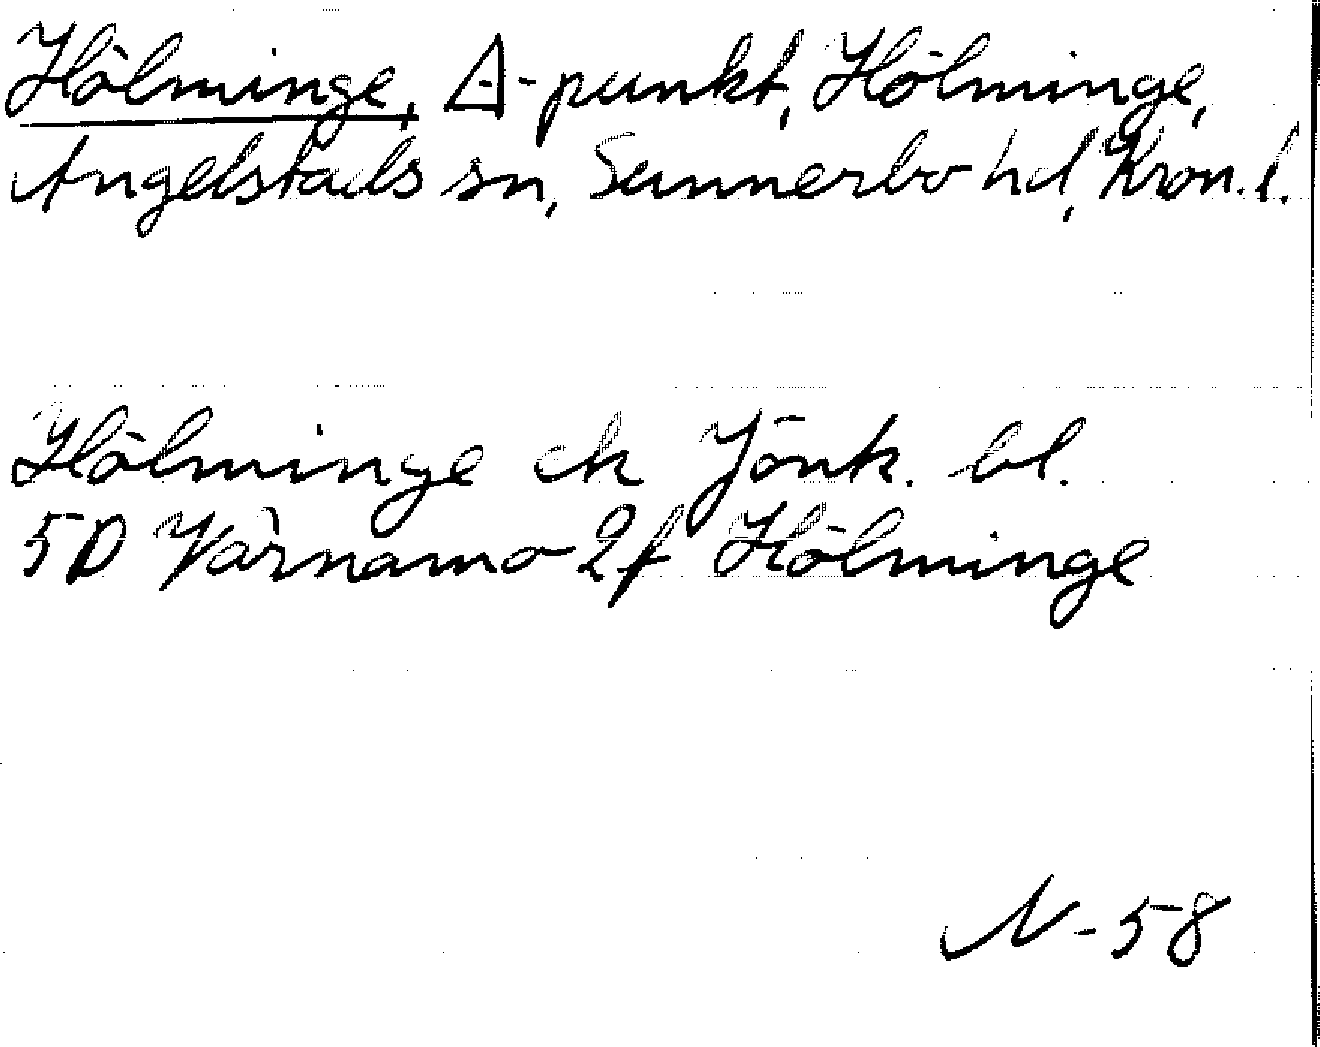 Hölminge, △-punkt, Hölminge,
Angelstads sn, Sunnerbo hd, Kron. l.
Hölminge ek Jönk. bl.
5D Värnamo 2f Hölminge
N-58